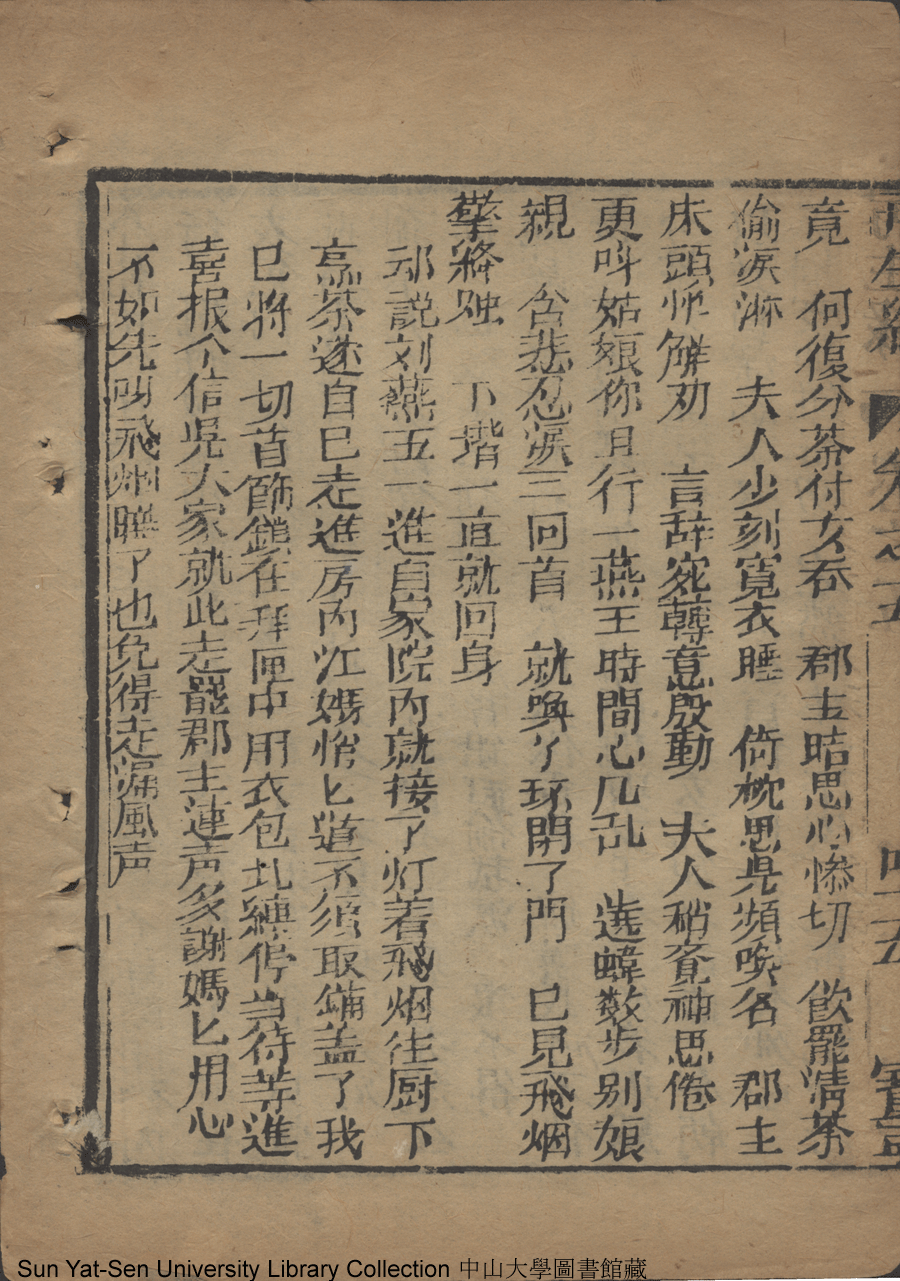 再生緣 卷之十 四十五
竟 何復分茶付女吞 郡主暗思心慘切 飲罷清茶
偷淚淋 夫人少刻寬衣睡 倚枕思児頻喚名 郡主
床頭忙解劝 言辞宛轉意慇動 夫人稍覓神思倦
更呌姑娘你且行 燕王時間心几乱 蓮步数步别娘
親 含悲忍淚三回首 就喚了环開了門 已見飛烟
擎絳烛 下堦一直就回身
却説刘燕玉一進自家院内就接了灯着飛烟往厨下
烹茶遂自巳走進房内江媽悄匕道不須取鋪盖了我
巳將一切首飾鎖在拜匣中用衣包扎纏停当待等進
喜报个信児大家就此走罷郡主連声多謝媽匕用心
不如先叫飛烟睡了也免得走漏風声
Sun Yat-Sen University Library Collection 中山大學圖書館藏